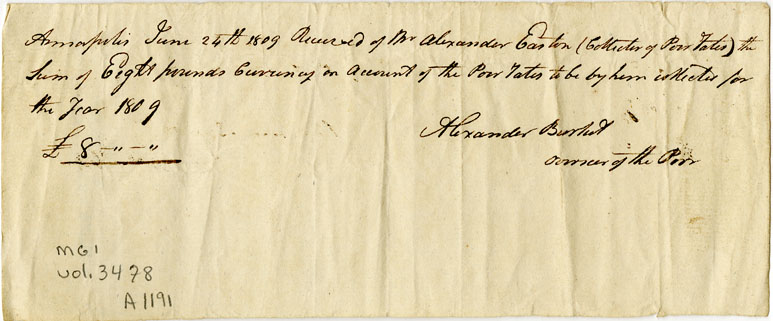 Annapolis June 24th 1809 Received of Mr Alexander Easton (Collector of Poor Tates) the
Sum of Eight pounds Currency on Account of the Poor Tates to be by him collecter for
the Year 1809
Alexander Burket
£ 8 -"- -"
overseer of the Poor
MG1
vol. 3478
A1191